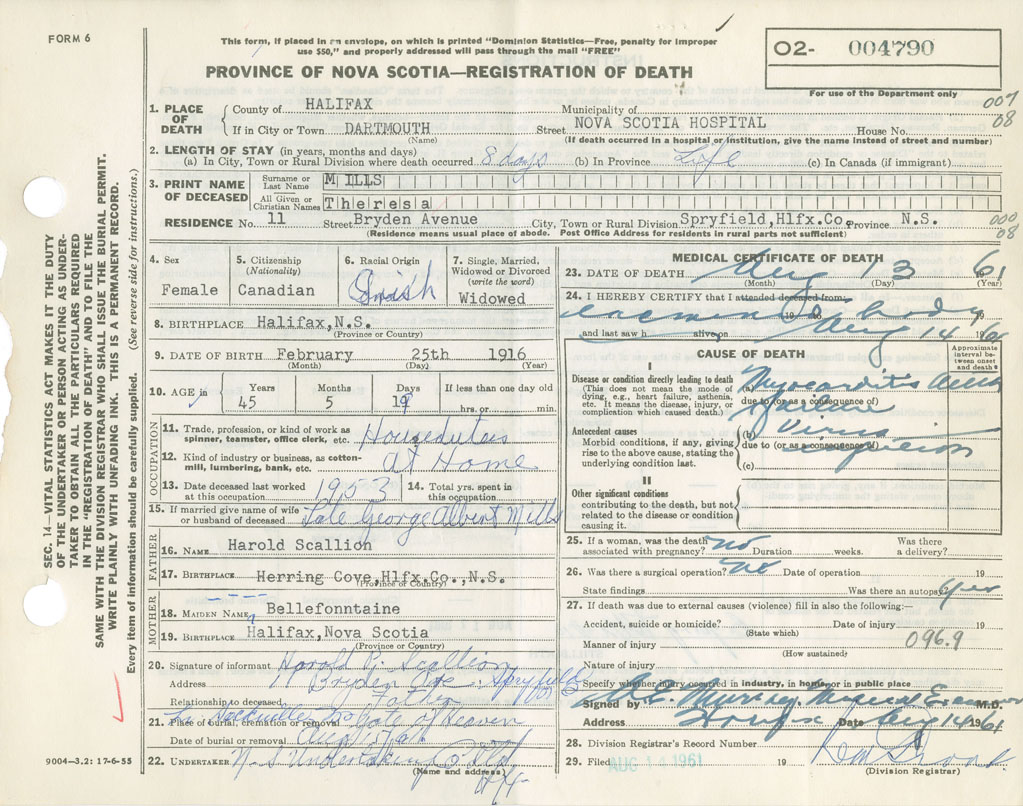 FORM 6
This form, if placed in an envelope, on which is printed "Dominion Statistics—Free, penalty for improper
use $50," and properly addressed will pass through the mail "FREE"
PROVINCE OF NOVA SCOTIA—REGISTRATION OF DEATH
O2- 004790
For use of the Department only
007
08
1. PLACE OF DEATH
County of HALIFAX Municipality of
If in City or Town DARTMOUTH Street NOVA SCOTIA HOSPITAL House No.
(Name) (If death occurred in a hospital or institution, give the name instead of street and number)
2. LENGTH OF STAY (in years, months and days)
(a) In City, Town or Rural Division where death occurred 8 days (b) In Province Life (c) In Canada (if immigrant)
3. PRINT NAME OF DECEASED
Surname or Last Name MILLS
All Given or Christian Names Theresa
RESIDENCE No. 11 Street Bryden Avenue City, Town or Rural Division Spryfield,Hlfx.Co. Province N.S.
(Residence means usual place of abode. Post Office Address for residents in rural parts not sufficient)
000
08
4. Sex
Female
5. Citizenship
(Nationality)
Canadian
6. Racial Origin
Irish
7. Single, Married,
Widowed or Divorced
(write the word)
Widowed
8. BIRTHPLACE Halifax,N.S.
(Province or Country)
9. DATE OF BIRTH February 25th 1916
(Month) (Day) (Year)
10. AGE in
Years Months Days If less than one day old
45 5 19 hrs. or min.
OCCUPATION
11. Trade, profession, or kind of work as
spinner, teamster, office clerk, etc. Houseduties
12. Kind of industry or business, as cotton-
mill, lumbering, bank, etc. At Home
13. Date deceased last worked
at this occupation 1953
14. Total yrs. spent in
this occupation
15. If married give name of wife
or husband of deceased Late George Albert Mills
FATHER
16. NAME Harold Scallion
17. BIRTHPLACE Herring Cove,Hlfx.Co.,N.S.
(Province or Country)
MOTHER
18. MAIDEN NAME Bellefonntaine
19. BIRTHPLACE Halifax,Nova Scotia
(Province or Country)
20. Signature of informant Harold P. Scallion
Address 11 Bryden Ave. Spryfield
Relationship to deceased Father
21. Place of burial, cremation or removal Gate of Heaven
Date of burial or removal
22. UNDERTAKER N.S. Undertaking Co Ltd
(Name and address) Hfx
MEDICAL CERTIFICATE OF DEATH
23. DATE OF DEATH Aug 13 61
(Month) (Day) (Year)
24. I HEREBY CERTIFY that I attended deceased from
body
and last saw h alive on Aug 14 61
CAUSE OF DEATH
Approximate interval between onset and death
I
Disease or condition directly leading to death
(This does not mean the mode of
dying, e.g., heart failure, asthenia,
etc. It means the disease, injury, or
complication which caused death.)
(a) Myocarditis acute
due to (or as a consequence of)
failure
Antecedent causes
Morbid conditions, if any, giving
rise to the above cause, stating the
underlying condition last.
(b) Virus
due to (or as a consequence of)
(c)
II
Other significant conditions
contributing to the death, but not
related to the disease or condition
causing it.
25. If a woman, was the death
associated with pregnancy? No Duration weeks. Was there
a delivery?
26. Was there a surgical operation? No Date of operation 19
State findings Was there an autopsy yes
27. If death was due to external causes (violence) fill in also the following:—
Accident, suicide or homicide? Date of injury 19
(State which)
Manner of injury 096.9
(How sustained)
Nature of injury
Specify whether injury occurred in industry, in home, or in public place
Signed by Murray M.D.
Address Date Aug 14 1961
28. Division Registrar's Record Number
29. Filed AUG 14 1961
(Division Registrar)
SEC. 14—VITAL STATISTICS ACT MAKES IT THE DUTY
OF THE UNDERTAKER OR PERSON ACTING AS UNDER-
TAKER TO OBTAIN ALL THE PARTICULARS REQUIRED
IN THE "REGISTRATION OF DEATH" AND TO FILE THE
SAME WITH THE DIVISION REGISTRAR WHO SHALL ISSUE THE BURIAL PERMIT.
WRITE PLAINLY WITH UNFADING INK. THIS IS A PERMANENT RECORD.
Every item of information should be carefully supplied. (See reverse side for instructions.)
9004—3.2: 17-6-55